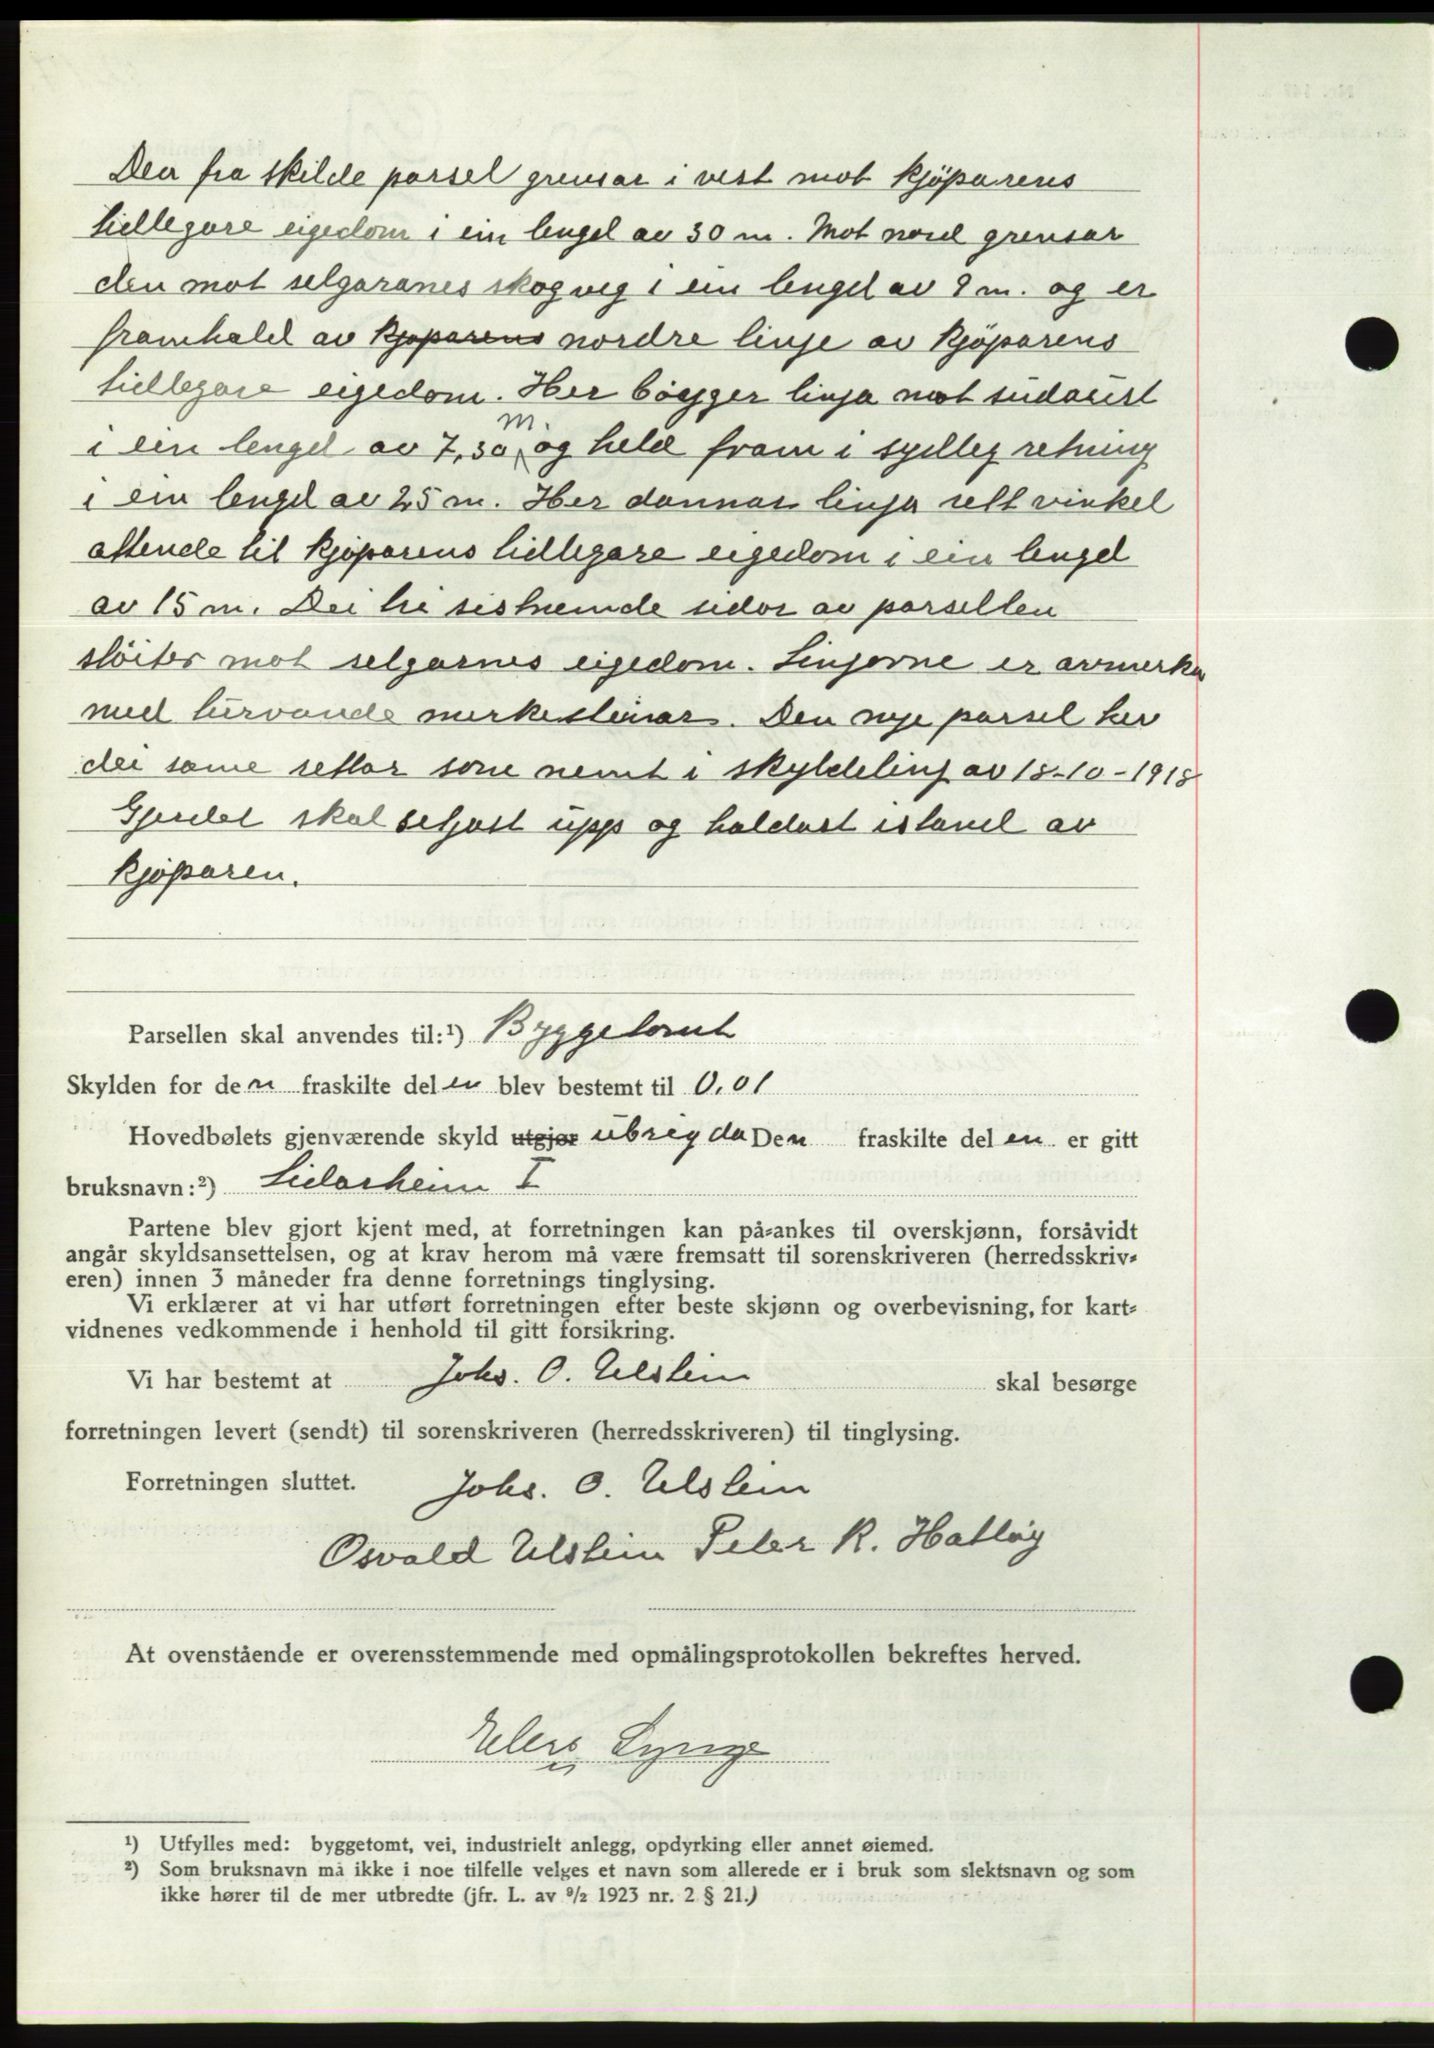 Den fra skilde parsel grensar i vest mot kjöparens
tidlegare eigedom i ein lengd av 30 m. Mot nord grensar
den mot selgaranes skogveg i ein lengd av 9 m. og er
framhald av kjøparens nordre linje av kjöparens
tidlegare eigedom. Her böygger linja mot sudaust
i ein lengd av 7,30 m. og held fram i sydleg retning
i ein lengd av 25 m. Her dannar linja rett vinkel
attende til kjöparens tidlegare eigedom i ein lengd
av 15 m. Dei tri sistnemde sidor av parsellen
stöiter mot selgarnes eigedom. Linjorne er avmerka
med turvande merkesteinar. Den nye parsel hev
dei same rettar som nemt i skyldeling av 18-10-1918
Gjerdet skal setjast upp og haldast istand av
kjöparen.
Parsellen skal anvendes til:¹) Byggetomt
Skylden for den fraskilte delen blev bestemt til 0,01
Hovedbølets gjenværende skyld utgjør ubrigda Den fraskilte delen er gitt
bruksnavn:²) Lidarheim I
Partene blev gjort kjent med, at forretningen kan på-ankes til overskjønn, forsåvidt
angår skyldsansettelsen, og at krav herom må være fremsatt til sorenskriveren (herredsskriv-
eren) innen 3 måneder fra denne forretnings tinglysing.
Vi erklærer at vi har utført forretningen efter beste skjønn og overbevisning, for kart-
vidnenes vedkommende i henhold til gitt forsikring.
Vi har bestemt at Johs. O. Ulstein skal besørge
forretningen levert (sendt) til sorenskriveren (herredsskriveren) til tinglysing.
Forretningen sluttet. Johs. O. Ulstein
Osvald Ulstein Peter R. Hatløy
At ovenstående er overensstemmende med opmålingsprotokollen bekreftes herved.
¹) Utfylles med: byggetomt, vei, industrielt anlegg, opdyrking eller annet øiemed.
²) Som bruksnavn må ikke i noe tilfelle velges et navn som allerede er i bruk som slektsnavn og som
ikke hører til de mer utbredte (jfr. L. av ⁹/₂ 1923 nr. 2 § 21.)